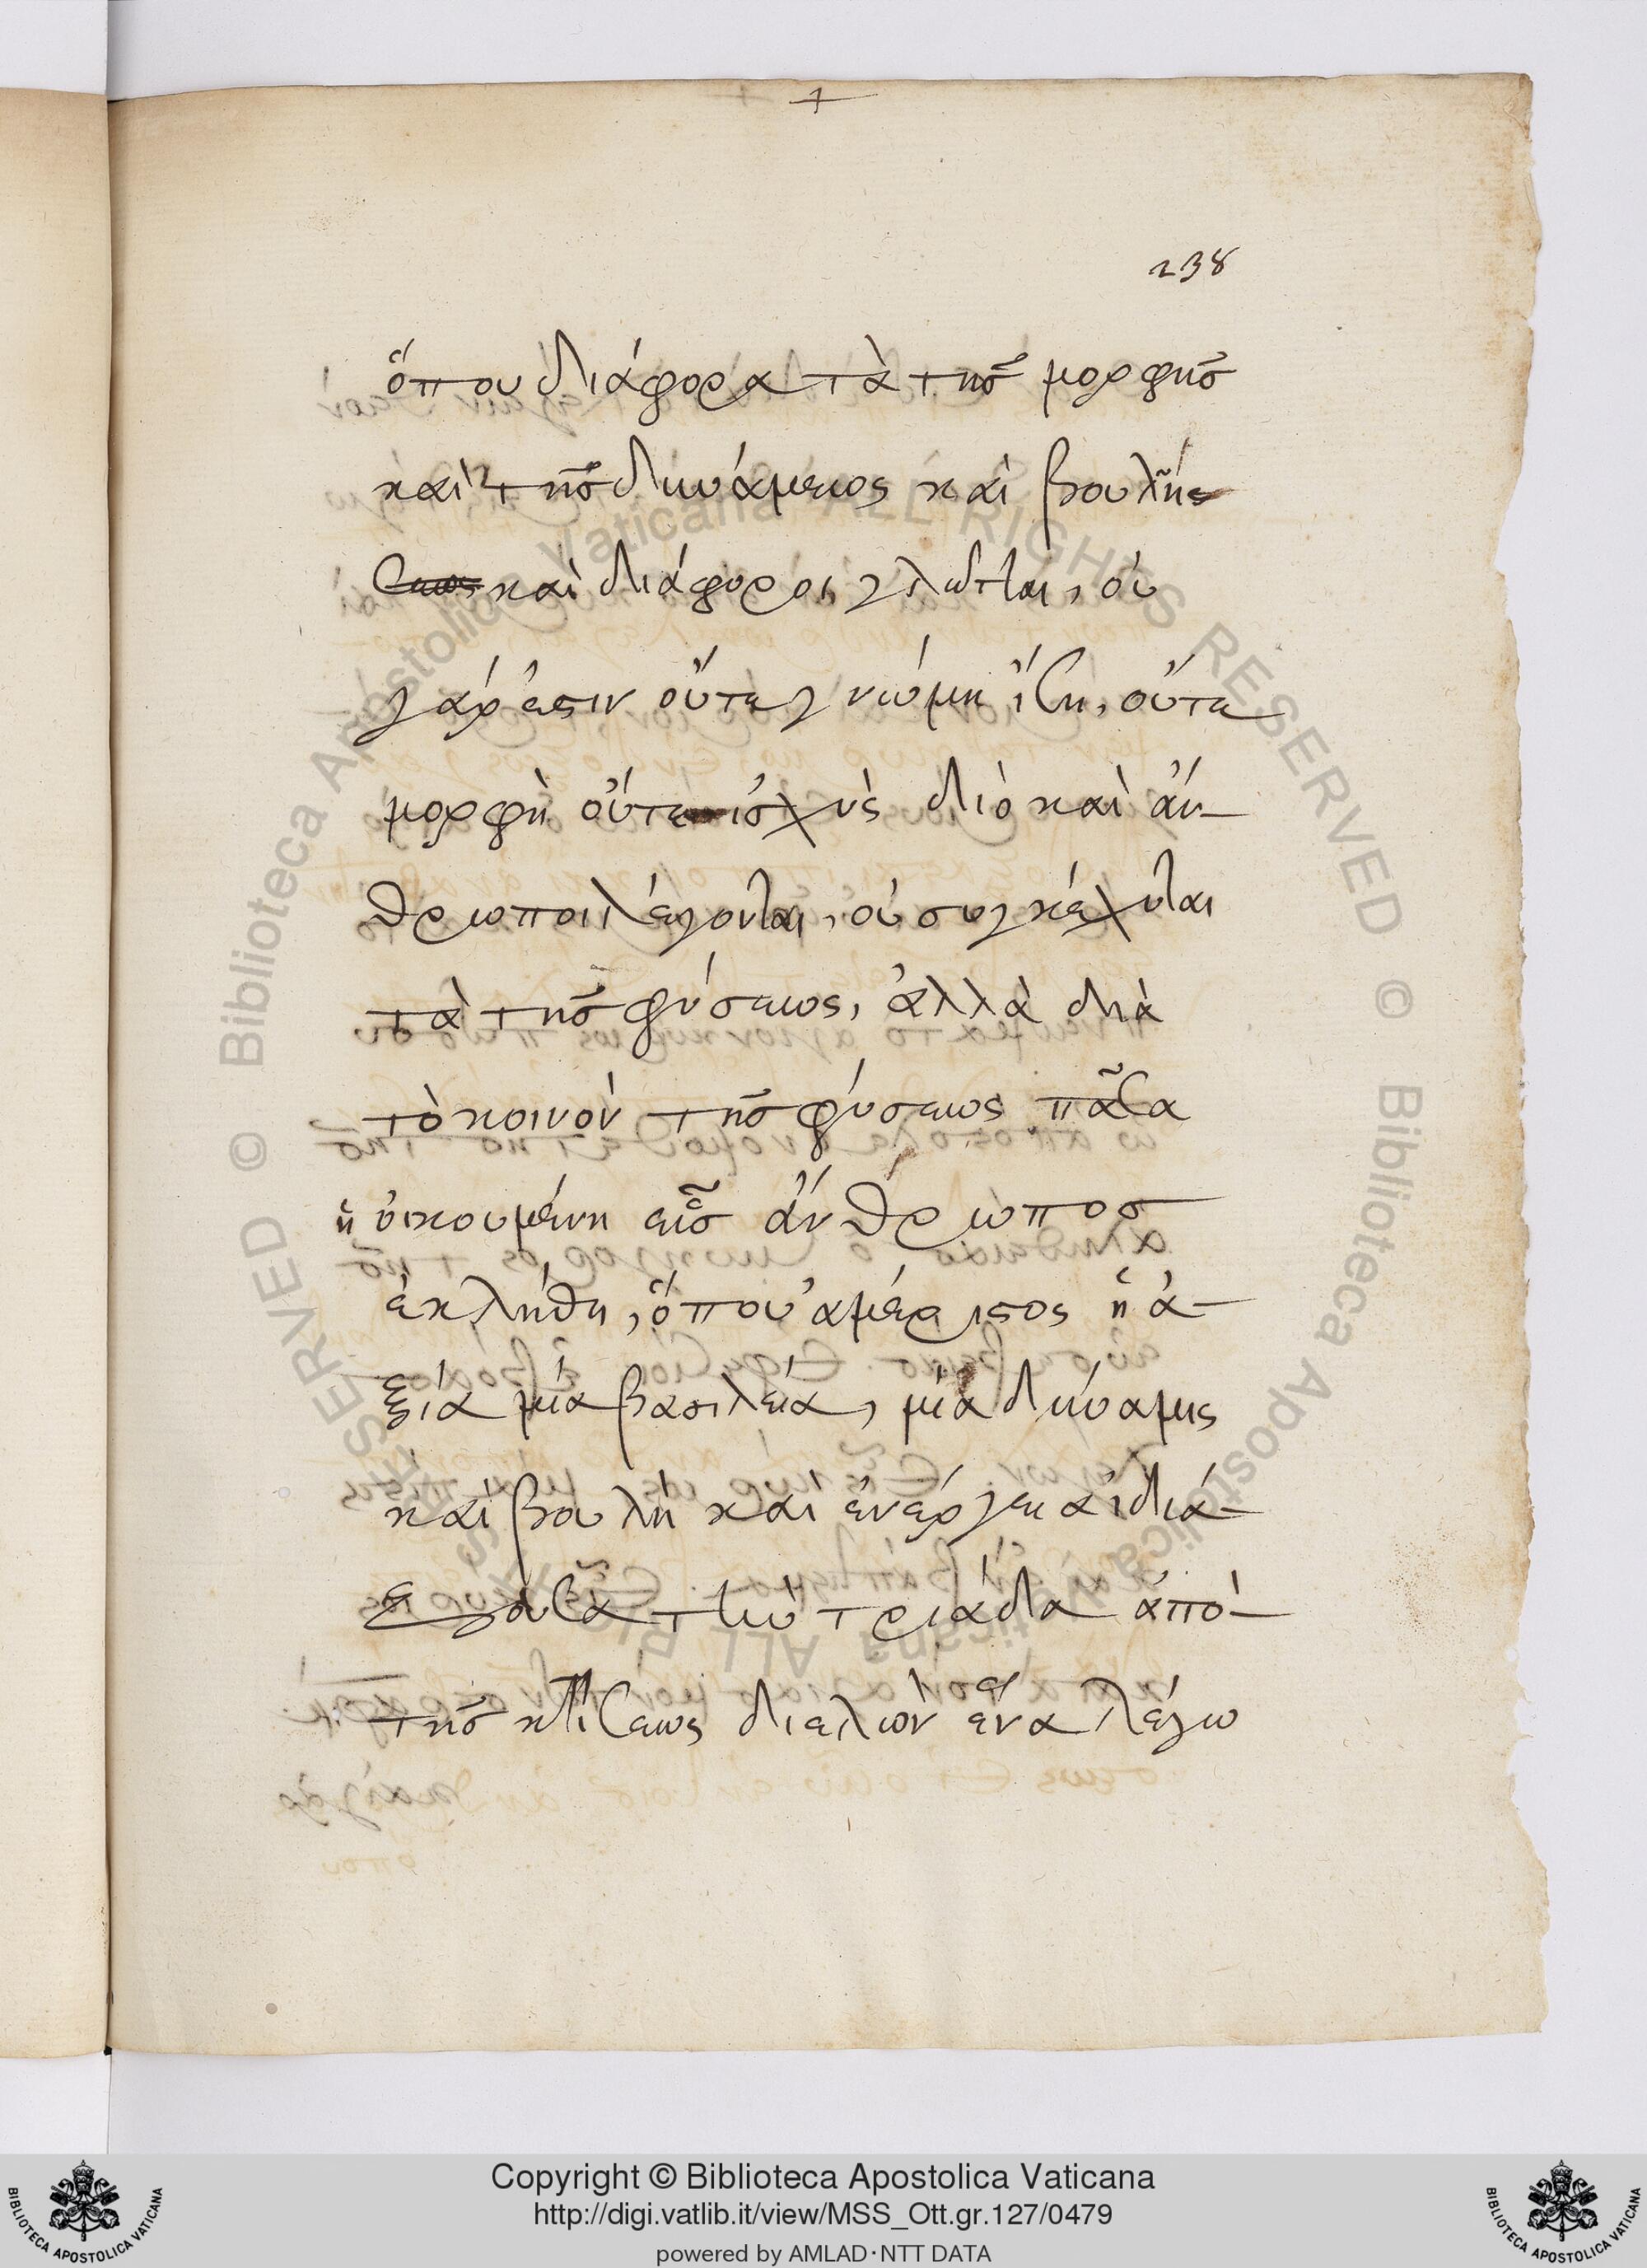 238
ὅπου διάφορα τὰ τῆς μορφῆς
καὶ τῆς δυνάμεως καὶ βουλῆς
καὶ διάφοροι γλῶτται, οὐ
γάρ ἐστιν οὔτε γνώμη ἴση, οὔτε
μορφὴ οὔτε ἰσχὺς διὸ καὶ ἄν-
θρωποι λέγονται, οὐ συγκέχυται
τὰ τῆς φύσεως, ἀλλὰ διὰ
τὸ κοινὸν τῆς φύσεως πᾶσα
ἡ οἰκουμένη εἷς ἄνθρωπος
ἐκλήθη, ὅπου ἀμέριστος ἡ ἀ-
ξία μία βασιλεία, μία δύναμις
καὶ βουλὴ καὶ ἐνέργεια ἰδιά-
ζουσα τὴν τριάδα ἀπὸ
τῆς κτίσεως διελὼν ἕνα λέγω
Copyright © Biblioteca Apostolica Vaticana
http://digi.vatlib.it/view/MSS_Ott.gr.127/0479
powered by AMLAD·NTT DATA
BIBLIOTECA APOSTOLICA VATICANA
BIBLIOTECA APOSTOLICA VATICANA
© Biblioteca Apostolica Vaticana ALL RIGHTS RESERVED © Biblioteca Apostolica Vaticana ALL RIGHTS RESERVED